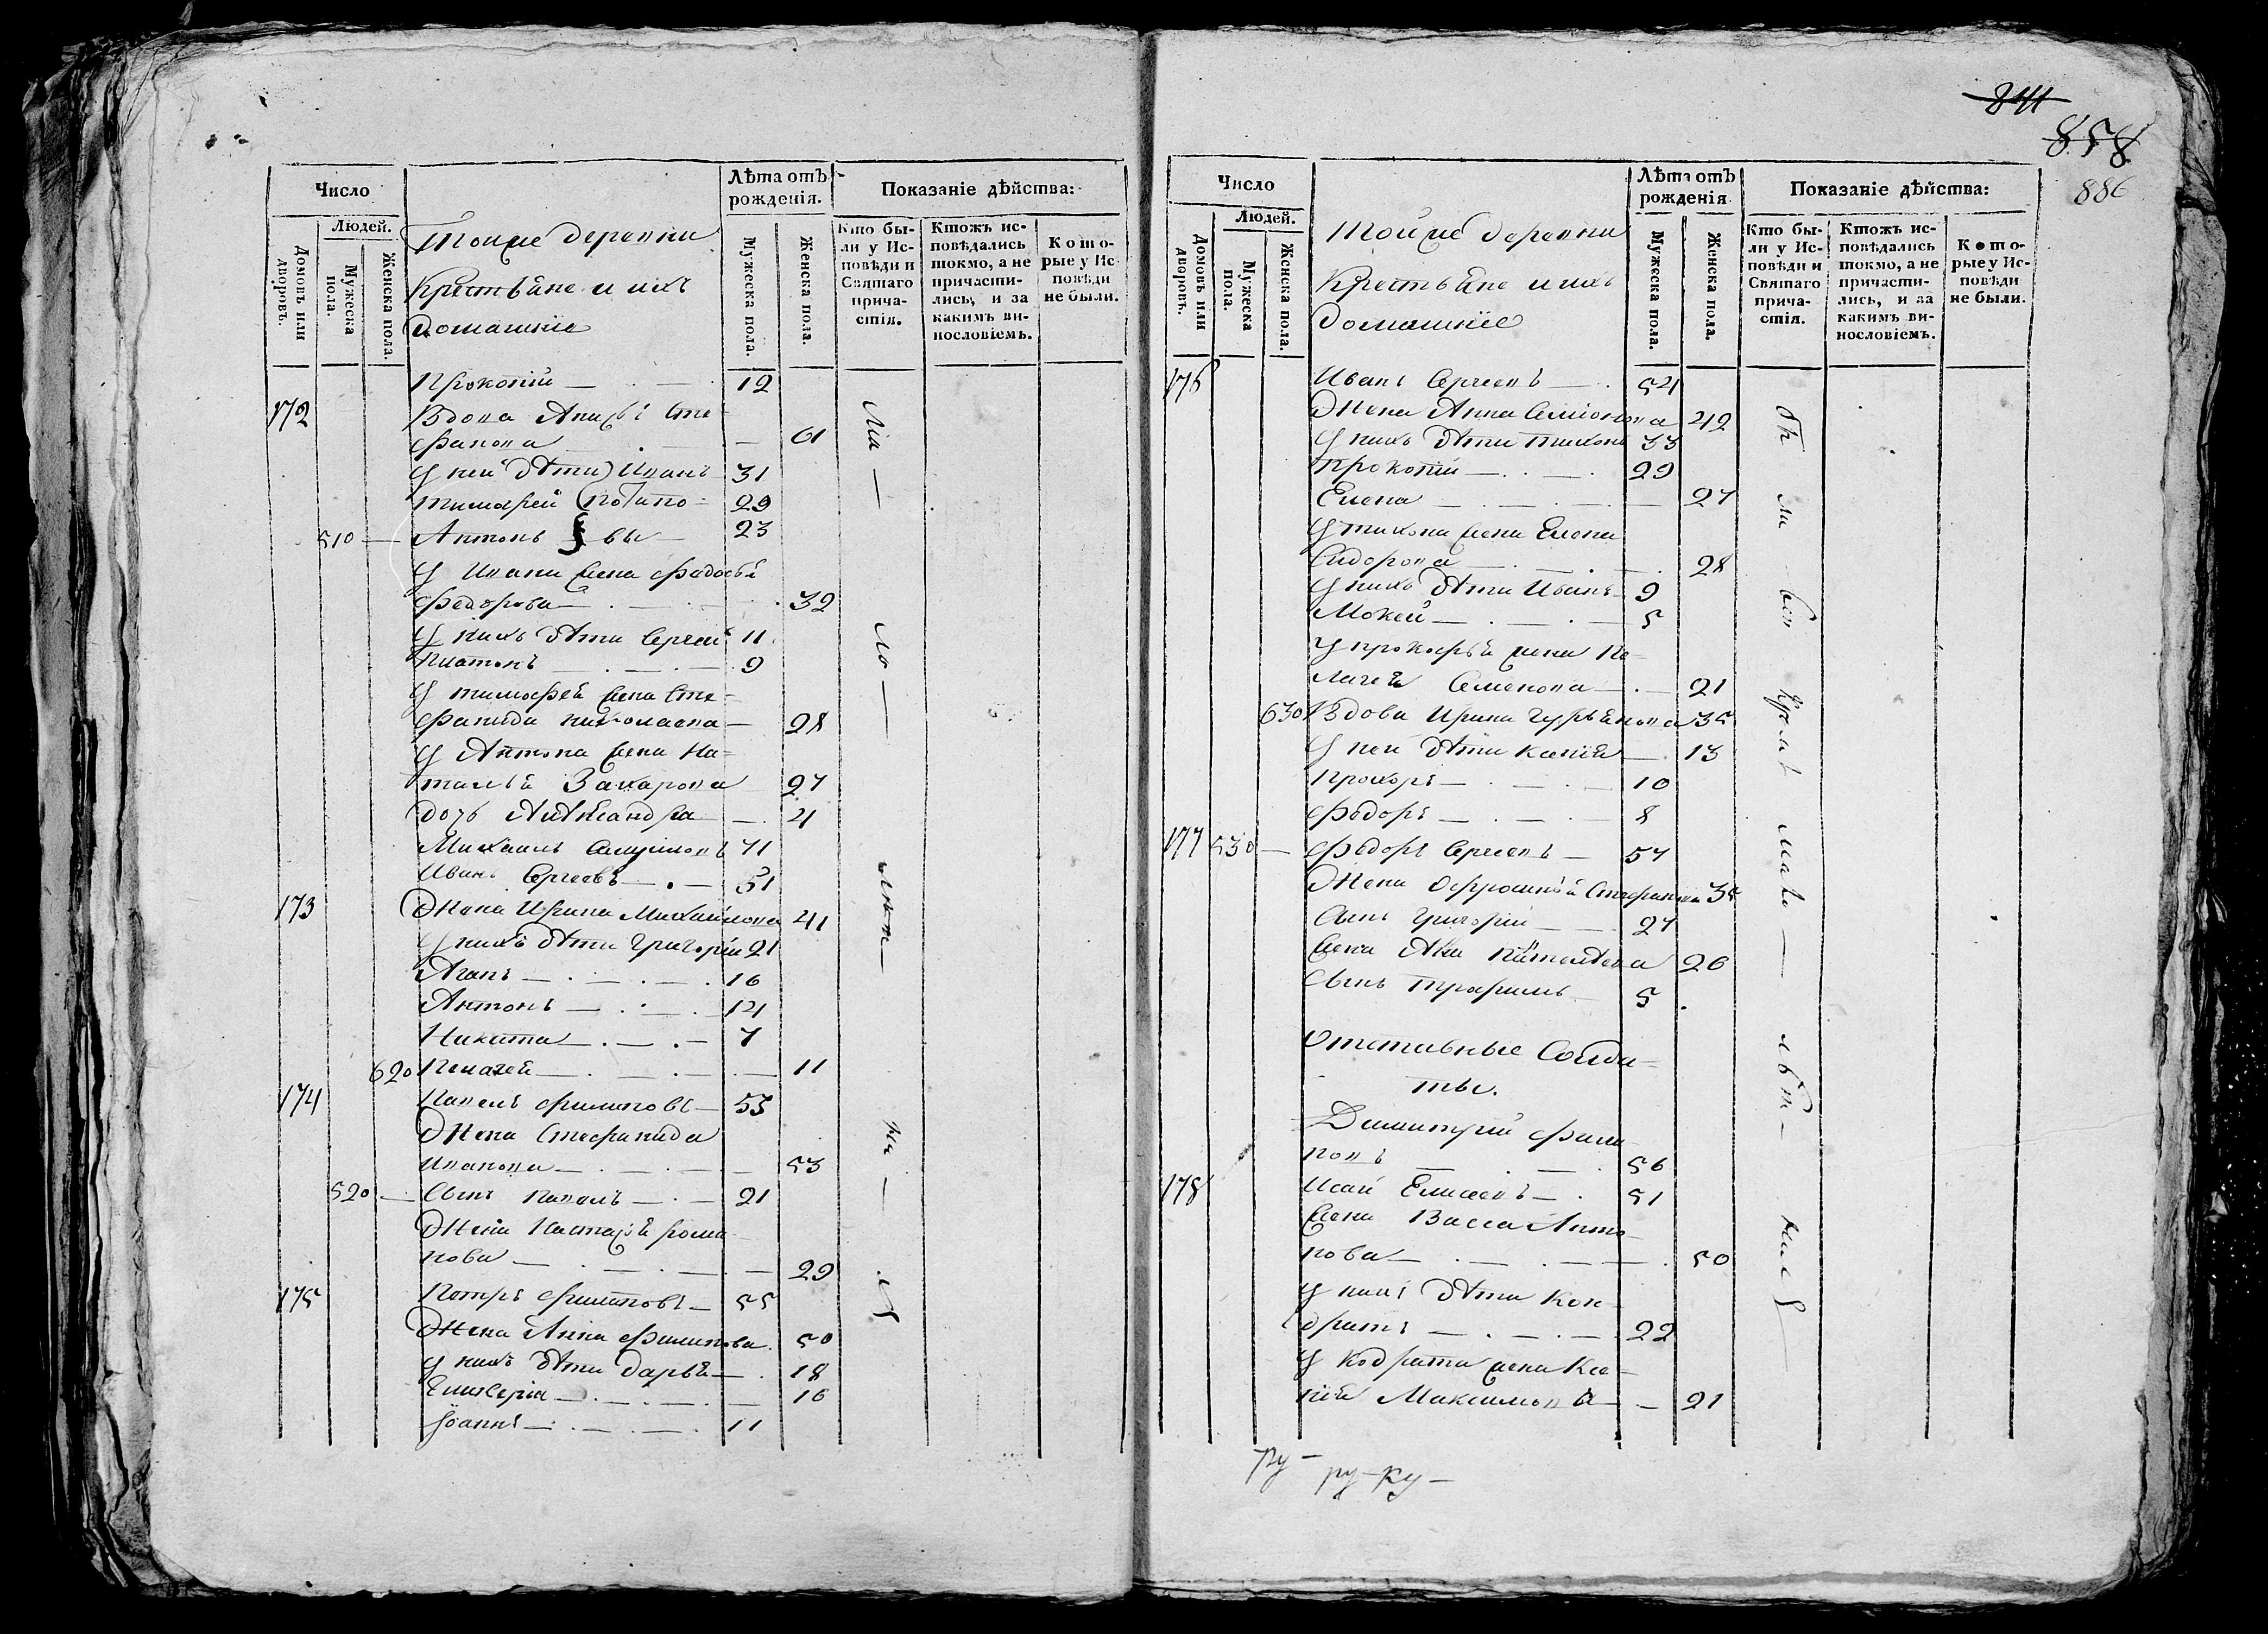 Число
Людей.
Домовъ или дворовъ.
Мужеска пола.
Женска пола.
Тойже деревни
Крестьяне и ихъ
домашніе
Лѣта отъ рожденія.
Мужеска пола.
Женска пола.
Показаніе дѣйства:
Кто бы-
ли у Ис-
повѣди и
Святаго
прича-
стія.
Ктожъ ис-
повѣдались
токмо, а не
причасти-
лись, и за
какимъ ви-
нословіемъ.
Кото-
рые у Ис-
повѣди
не были.
Прокопій — 12
172 Вдова Анисья Сте
фанова — 61
У ней дѣти Иванъ 31
Тимофей Потапо= 29
510 — Антонъ вы 23
У Ивана жена Федосья
Федорова — 32
У нихъ дѣти Сергей 11
Платонъ — 9
У Тимофея жена Сте=
фанида Николаева — 28
У Антона жена На=
талья Захарова 27
дочь Александра — 4
Михаилъ 71
Иванъ Сергеевъ — 51
173 Жена Ирина Михайлова 41
У нихъ дѣти Григорій 21
Агапъ — 16
Антонъ — 14
Никита — 7
620 Пелагея — 11
174 Павелъ Филиповъ — 53
Жена Стефанида
Иванова — 53
520 — Сынъ Павелъ — 21
Жена Настасья Рома
нова — 29
175 Петръ Филиповъ — 55
Жена Анна Филипова 50
У нихъ дѣти Дарья — 18
Гликерія — 16
Іоаннъ — 11
841
858
886
Число
Людей.
Домовъ или дворовъ.
Мужеска пола.
Женска пола.
Тойже деревни
Крестьяне и ихъ
домашніе
Лѣта отъ рожденія
Мужеска пола.
Женска пола.
Показаніе дѣйства:
Кто бы-
ли у Ис-
повѣди и
Святаго
прича-
стія.
Ктожъ ис-
повѣдались
токмо, а не
причасти-
лись, и за
какимъ ви-
нословіемъ.
Кото-
рые у Ис-
повѣди
не были.
176 Иванъ Сергеевъ — 54
Жена Анна Семіонова 42
У нихъ дѣти Тихонъ 33
Прокопій — 29
Елена — 27
У Тихона жена Елена
Сидорова — 28
У нихъ дѣти Иванъ — 9
Мокей — 5
У Прокофья жена Пе=
лагея Семенова — 21
630 Вдова Ирина Гурьянова 35
У ней дѣти Ксенія — 13
Прохоръ — 10
Фѣдоръ — 8
177 530 — Фѣдоръ Сергеевъ — 57
Жена Ефросинья Стефанова 35
Сынъ Григорій — 27
Жена 26
Сынъ Трофимъ — 5
Отставные Солда=
ты.
Димитрій Фили
повъ — 56
178 Исай Елисеевъ — 51
Жена Васса Анто
нова — 50
У нихъ дѣти Кон=
дратъ — 22
У Кодрата жена Ксе=
нія Максимова — 21
ру — ру-ку —